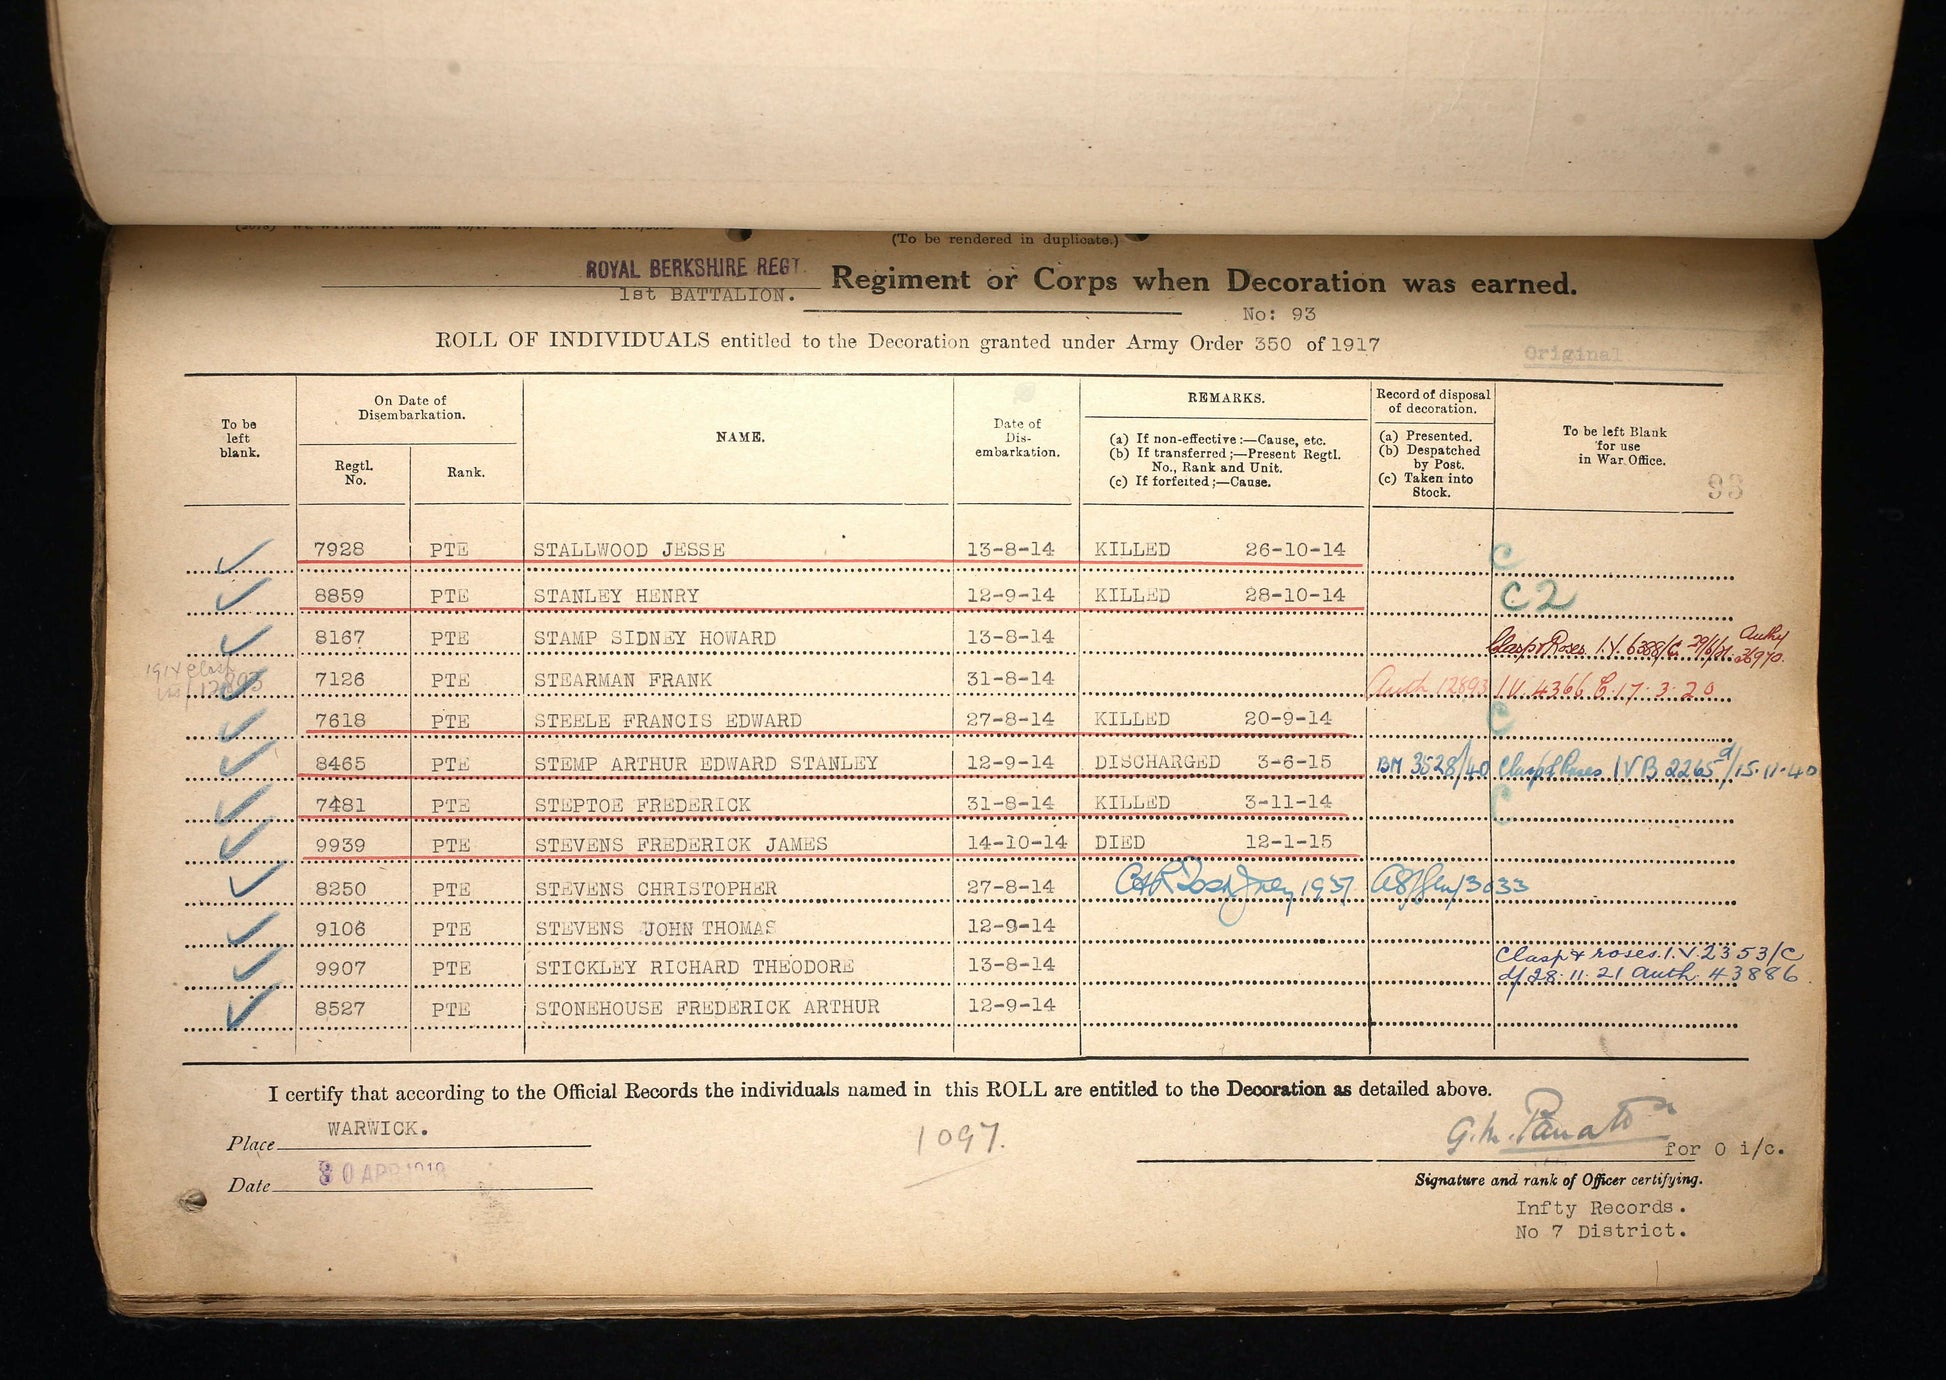 (To be rendered in duplicate.)
ROYAL BERKSHIRE REGT. Regiment or Corps when Decoration was earned.
1st BATTALION.
No: 93
ROLL OF INDIVIDUALS entitled to the Decoration granted under Army Order 350 of 1917
Original
To be left blank.
On Date of Disembarkation.
Regtl. No.
Rank.
NAME.
Date of Dis-embarkation.
REMARKS.
(a) If non-effective:—Cause, etc.
(b) If transferred;—Present Regtl. No., Rank and Unit.
(c) If forfeited;—Cause.
Record of disposal of decoration.
(a) Presented.
(b) Despatched by Post.
(c) Taken into Stock.
To be left Blank for use in War Office.
93
7928 PTE STALLWOOD JESSE 13-8-14 KILLED 26-10-14 C
8859 PTE STANLEY HENRY 12-9-14 KILLED 28-10-14 C2
8167 PTE STAMP SIDNEY HOWARD 13-8-14 Clasp & Roses I.V. 6388/C 29/6/21 Authy 36970.
1914 Clasp 12893 7126 PTE STEARMAN FRANK 31-8-14 Auth 12893 I.V. 4366 C.17.3.20
7618 PTE STEELE FRANCIS EDWARD 27-8-14 KILLED 20-9-14 C
8465 PTE STEMP ARTHUR EDWARD STANLEY 12-9-14 DISCHARGED 3-6-15 BM 3528/40 Clasp & Roses IVB 2265 d/15.11.40
7481 PTE STEPTOE FREDERICK 31-8-14 KILLED 3-11-14 C
9939 PTE STEVENS FREDERICK JAMES 14-10-14 DIED 12-1-15
8250 PTE STEVENS CHRISTOPHER 27-8-14 1937 3033
9106 PTE STEVENS JOHN THOMAS 12-9-14
9907 PTE STICKLEY RICHARD THEODORE 13-8-14 Clasp & roses. I.V. 2353/C
d/28.11.21 Auth. 43886
8527 PTE STONEHOUSE FREDERICK ARTHUR 12-9-14
I certify that according to the Official Records the individuals named in this ROLL are entitled to the Decoration as detailed above.
Place WARWICK.
1097.
for O i/c.
Date 30 APR 1919
Signature and rank of Officer certifying.
Infty Records.
No 7 District.